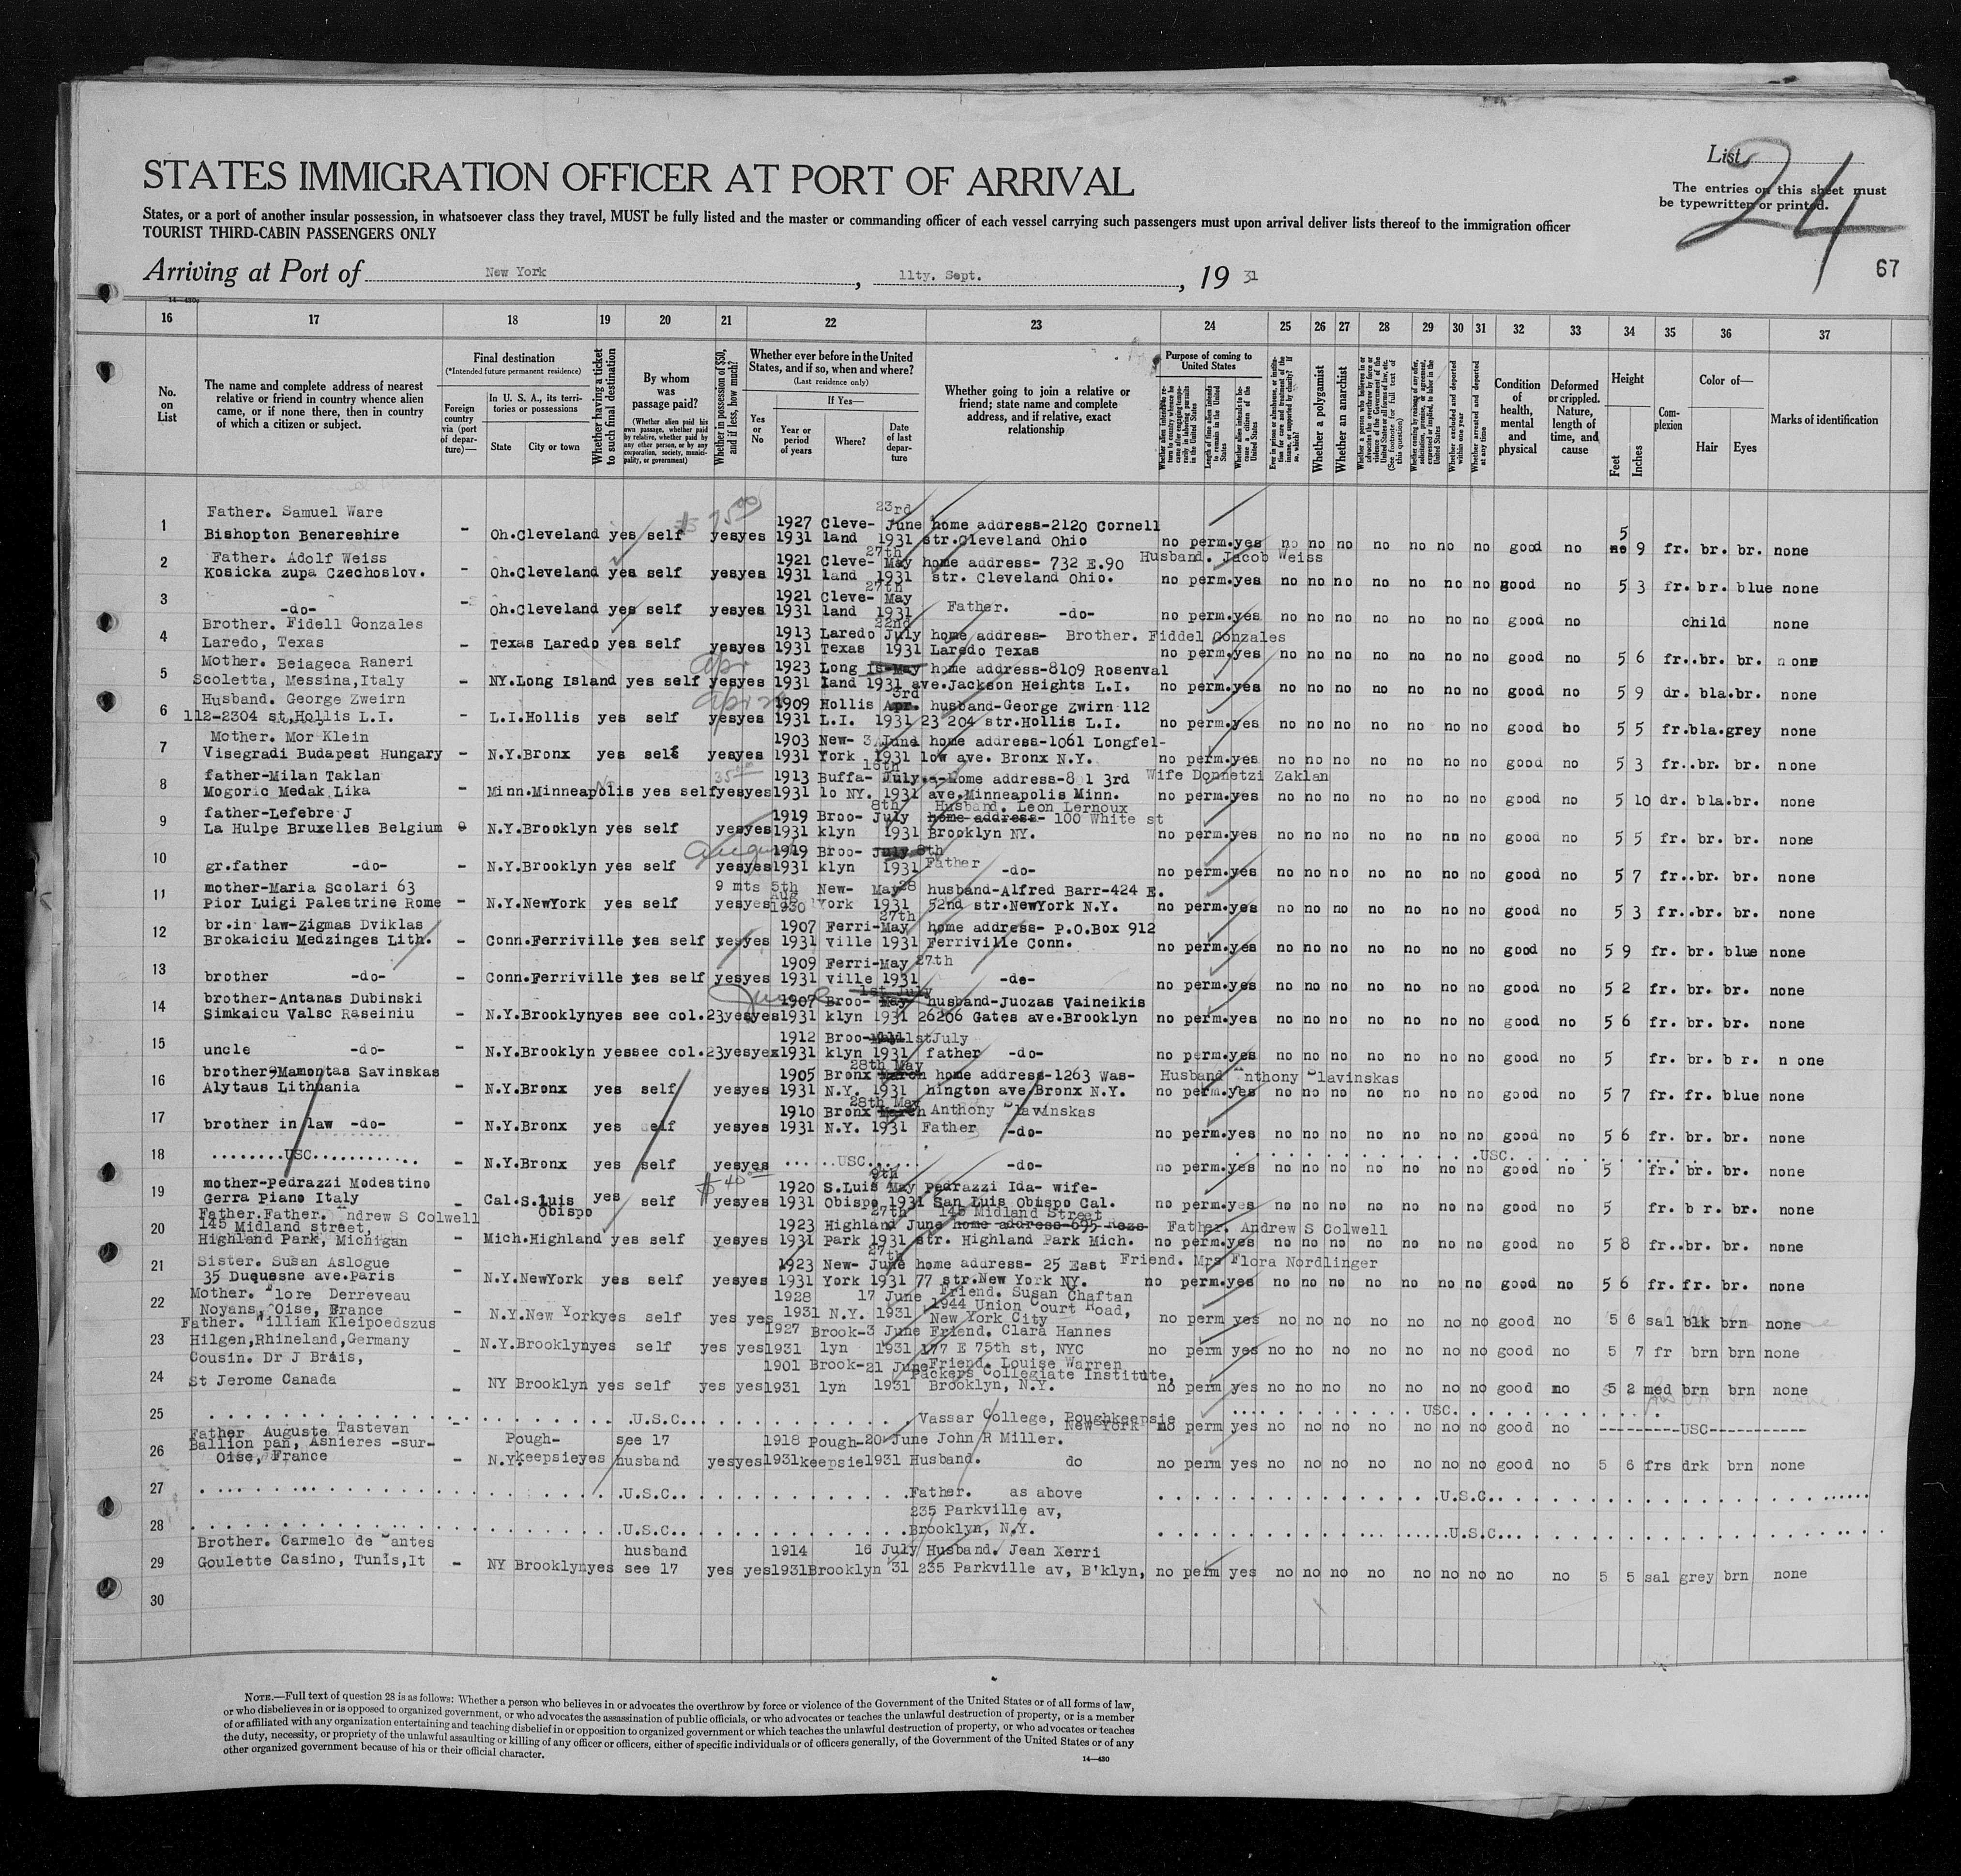 List
24
The entries on this sheet must
be typewritten or printed.
67
STATES IMMIGRATION OFFICER AT PORT OF ARRIVAL
States, or a port of another insular possession, in whatsoever class they travel, MUST be fully listed and the master or commanding officer of each vessel carrying such passengers must upon arrival deliver lists thereof to the immigration officer
TOURIST THIRD-CABIN PASSENGERS ONLY
Arriving at Port of New York, 11ty. Sept., 19 31
16 17 18 19 20 21 22 23 24 25 26 27 28 29 30 31 32 33 34 35 36 37
No. on List
The name and complete address of nearest relative or friend in country whence alien came, or if none there, then in country of which a citizen or subject.
Final destination
(*Intended future permanent residence)
Foreign country via (port of departure)—
In U. S. A., its territories or possessions
State
City or town
Whether having a ticket to such final destination
By whom was passage paid?
(Whether alien paid his own passage, whether paid by relative, whether paid by any other person, or by any corporation, society, municipality, or government)
Whether in possession of $50, and if less, how much?
Whether ever before in the United States, and if so, when and where?
(Last residence only)
Yes or No
If Yes—
Year or period of years
Where?
Date of last departure
Whether going to join a relative or friend; state name and complete address, and if relative, exact relationship
Purpose of coming to United States
Whether a polygamist
Whether an anarchist
Whether excluded and deported within one year
Whether arrested and deported at any time
Condition of health, mental and physical
Deformed or crippled. Nature, length of time, and cause
Height
Feet
Inches
Complexion
Color of—
Hair
Eyes
Marks of identification
Father. Samuel Ware 23rd
1 Bishopton Benereshire - Oh.Cleveland yes self yesyes 1927 Cleve- June home address-2120 Cornell
1931 land 1931 str.Cleveland Ohio no perm.yes no no no no no no no good no 5 9 fr. br. br. none
Father. Adolf Weiss 27th Husband. Jacob Weiss
2 Kosicka zupa Czechoslov. - Oh.Cleveland yes self yesyes 1921 Cleve- May home address- 732 E.90
1931 land 1931 str. Cleveland Ohio. no perm.yes no no no no no no no good no 5 3 fr. br. blue none
3 -do- - Oh.Cleveland yes self yesyes 1921 Cleve- 27th May
1931 land 1931 Father. -do- no perm.yes no no no no no no no good no child none
Brother. Fidell Gonzales 22nd
4 Laredo, Texas - Texas Laredo yes self yesyes 1913 Laredo July home address- Brother. Fiddel Gonzales
1931 Texas 1931 Laredo Texas no perm.yes no no no no no no no good no 5 6 fr..br. br. none
Mother. Beiageca Raneri 1923 Long Is-May home address-8109 Rosenval
5 Scoletta, Messina,Italy - NY.Long Island yes self yesyes 1931 land 1931 ave.Jackson Heights L.I. no perm.yes no no no no no no no good no 5 9 dr. bla.br. none
Husband. George Zweirn 3rd 1909 Hollis Apr. husband-George Zwirn 112
6 112-2304 st,Hollis L.I. - L.I.Hollis yes self yesyes 1931 L.I. 1931 23 204 str.Hollis L.I. no perm.yes no no no no no no no good no 5 5 fr.bla.grey none
Mother. Mor Klein 1903 New- 3 June home address-1061 Longfel-
7 Visegradi Budapest Hungary - N.Y.Bronx yes self yesyes 1931 York 1931 low ave. Bronx N.Y. no perm.yes no no no no no no no good no 5 3 fr..br. br. none
father-Milan Taklan 16th 1913 Buffa- July.a-Home address-801 3rd Wife Donnetzi Zaklan
8 Mogoric Medak Lika - Minn.Minneapolis yes self yesyes 1931 lo NY. 1931 ave.Minneapolis Minn. no perm.yes no no no no no no no good no 5 10 dr. bla.br. none
father-Lefebre J 8th Husband. Leon Lernoux
1919 Broo- July home address- 100 White st
9 La Hulpe Bruxelles Belgium - N.Y.Brooklyn yes self yesyes 1931 klyn 1931 Brooklyn NY. no perm.yes no no no no no no no good no 5 5 fr. br. br. none
1919 Broo- July 8th
10 gr.father -do- - N.Y.Brooklyn yes self yesyes 1931 klyn 1931 Father -do- no perm.yes no no no no no no no good no 5 7 fr..br. br. none
mother-Maria Scolari 63 9 mts 5th Aug New- May 28 husband-Alfred Barr-424 E.
11 Pior Luigi Palestrine Rome - N.Y.NewYork yes self yesyes 1930 York 1931 52nd str.NewYork N.Y. no perm.yes no no no no no no no good no 5 3 fr..br. br. none
br.in law-Zigmas Dviklas 27th 1907 Ferri-May home address- P.O.Box 912
12 Brokaiciu Medzinges Lith. - Conn.Ferriville yes self yesyes 1931 ville 1931 Ferriville Conn. no perm.yes no no no no no no no good no 5 9 fr. br. blue none
1909 Ferri-May 27th
13 brother -do- - Conn.Ferriville yes self yesyes 1931 ville 1931 -do- no perm.yes no no no no no no no good no 5 2 fr. br. br. none
brother-Antanas Dubinski 1st July 1907 Broo- May husband-Juozas Vaineikis
14 Simkaicu Valsc Raseiniu - N.Y.Brooklyn yes see col.23 yesyes 1931 klyn 1931 26206 Gates ave.Brooklyn no perm.yes no no no no no no no good no 5 6 fr. br. br. none
1912 Broo- 1stJuly
15 uncle -do- - N.Y.Brooklyn yes see col.23 yesyex 1931 klyn 1931 father -do- no perm.yes no no no no no no no good no 5 fr. br. b r. n one
brother-Mamontas Savinskas 28th May 1905 Bronx March home address-1263 Was- Husband Anthony Slavinskas
16 Alytaus Lithuania - N.Y.Bronx yes self yesyes 1931 N.Y. 1931 hington ave.Bronx N.Y. no perm.yes no no no no no no no good no 5 7 fr. fr. blue none
28th May 1910 Bronx March Anthony Slavinskas
17 brother in law -do- - N.Y.Bronx yes self yesyes 1931 N.Y. 1931 Father -do- no perm.yes no no no no no no no good no 5 6 fr. br. br. none
18 ........USC........... - N.Y.Bronx yes self yesyes ......USC...... -do- no perm.yes no no no no no no no USC good no 5 fr. br. br. none
mother-Pedrazzi Modestino $ 40 9th 1920 S.Luis May Pedrazzi Ida- wife-
19 Gerra Piano Italy - Cal.S.luis Obispo yes self yesyes 1931 Obispo 1931 San Luis Obispo Cal. no perm.yes no no no no no no no good no 5 fr. b r. br. none
Father.Father. Andrew S Colwell 27th 145 Midland Street
20 145 Midland street, 1923 Highland June home address-695 Father. Andrew S Colwell
Highland Park, Michigan - Mich.Highland yes self yesyes 1931 Park 1931 str. Highland Park Mich. no perm.yes no no no no no no no good no 5 8 fr..br. br. none
Sister. Susan Aslogue 27th 1923 New- June home address- 25 East Friend. Mrs Flora Nordlinger
21 35 Duquesne ave.Paris - N.Y.NewYork yes self yesyes 1931 York 1931 77 str.New York NY. no perm.yes no no no no no no no good no 5 6 fr. fr. br. none
Mother. Flore Derreveau 1928 17 June Friend. Susan Chaftan
22 Noyans, Oise, France - N.Y.New York yes self yes yes 1931 N.Y. 1931 1944 Union Court Road,
New York City no perm yes no no no no no no no good no 5 6 sal blk brn none
Father. William Kleipoedszus 1927 Brook-3 June Friend. Clara Hannes
23 Hilgen,Rhineland,Germany - N.Y.Brooklyn yes self yes yes 1931 lyn 1931 177 E 75th st, NYC no perm yes no no no no no no no good no 5 7 fr brn brn none
Cousin. Dr J Brais, 1901 Brook-21 June Friend. Louise Warren
24 St Jerome Canada - NY Brooklyn yes self yes yes 1931 lyn 1931 Packers Collegiate Institute,
Brooklyn, N.Y. no perm yes no no no no no no no good no 5 2 med brn brn none
25 .......U.S.C........ Vassar College, Poughkeepsie New York USC no perm yes no no no no no no no good no --------USC-----------
Father Auguste Tastevan
26 Ballion pan, Asnieres -sur-Oise, France - N.Y. Pough-keepsie yes see 17 husband yesyes 1918 1931 Pough-keepsie 20 June 1931 John R Miller. Husband. do no perm yes no no no no no no no good no 5 6 frs drk brn none
27 .......U.S.C........ Father. as above .......U.S.C........
235 Parkville av,
28 .......U.S.C........ Brooklyn, N.Y. .......U.S.C........
Brother. Carmelo de Santes husband 1914 16 July Husband. Jean Xerri
29 Goulette Casino, Tunis,It - NY Brooklyn yes see 17 yes yes 1931 Brooklyn '31 235 Parkville av, B'klyn, no perm yes no no no no no no no no no 5 5 sal grey brn none
30
NOTE.—Full text of question 28 is as follows: Whether a person who believes in or advocates the overthrow by force or violence of the Government of the United States or of all forms of law,
or who disbelieves in or is opposed to organized government, or who advocates the assassination of public officials, or who advocates or teaches the unlawful destruction of property, or is a member
of or affiliated with any organization entertaining and teaching disbelief in or opposition to organized government or which teaches the unlawful destruction of property, or who advocates or teaches
the duty, necessity, or propriety of the unlawful assaulting or killing of any officer or officers, either of specific individuals or of officers generally, of the Government of the United States or of any
other organized government because of his or their official character.
14—430